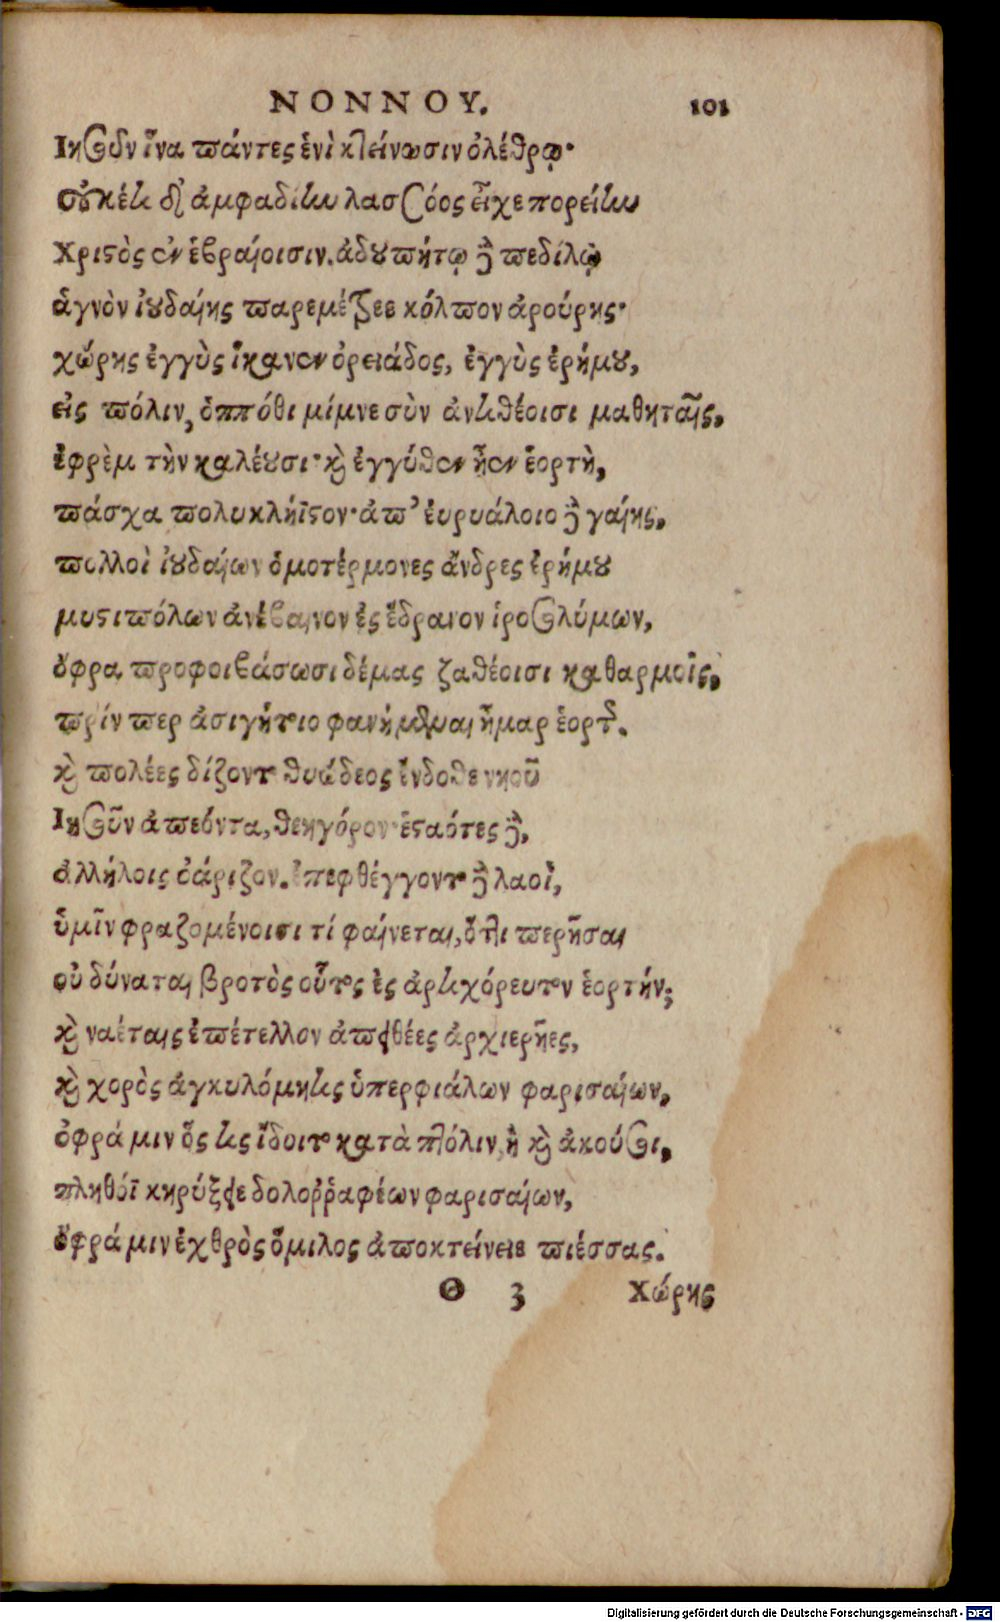 ΝΟΝΝΟΥ. 101
Ιησοῦν ἵνα πάντες ἑνὶ κτείνωσιν ὀλέθρῳ·
οὐκέτι δ᾽ ἀμφαδίην λαοσσόος εἶχε πορείην
Χριστὸς ἐν ἑβραίοισιν. ἀδουπήτῳ δὲ πεδίλῳ
ἁγνὸν ἰουδαίης παρεμέτρεε κόλπον ἀρούρης·
χώρης ἐγγὺς ἵκανεν ὀρειάδος, ἐγγὺς ἐρήμου,
εἰς πόλιν, ὁππόθι μίμνε σὺν ἀντιθέοισι μαθηταῖς,
ἐφρὲμ τὴν καλέουσι· καὶ ἐγγύθεν ἦεν ἑορτὴ,
πάσχα πολυκλήϊστον· ἀπ᾽ εὐρυάλοιο δὲ γαίης,
πολλοὶ ἰουδαίων ὁμοτέρμονες ἄνδρες ἐρήμου
μυστιπόλων ἀνέβαινον ἐς ἕδρανον ἱροσολύμων,
ὄφρα προφοιβάσωσι δέμας ζαθέοισι καθαρμοῖς,
πρίν περ ἀσιγήτοιο φανήμεναι ἦμαρ ἑορτῆς.
καὶ πολέες δίζοντο θυώδεος ἔνδοθε νηοῦ
Ιησοῦν ἀπεόντα, θεηγόρον· ἑσταότες δὲ,
ἀλλήλοις ὀάριζον. ἐπεφθέγγοντο δὲ λαοὶ,
ὑμῖν φραζομένοισι τί φαίνεται, ὅττι περῆσαι
οὐ δύναται βροτὸς οὗτος ἐς ἀρτιχόρευτον ἑορτήν;
καὶ ναέταις ἐπέτελλον ἀπειθέες ἀρχιερῆες,
καὶ χορὸς ἀγκυλόμητις ὑπερφιάλων φαρισαίων,
ὀφρά μιν ὅς τις ἴδοιτο κατὰ πτόλιν, ἢ καὶ ἀκούσῃ,
πληθόϊ κηρύξειε δολορῤαφέων φαρισαίων,
ὄφρά μιν ἐχθρὸς ὅμιλος ἀποκτείνειε πιέσσας.
Θ 3 Χώρης
Digitalisierung gefördert durch die Deutsche Forschungsgemeinschaft - DFG